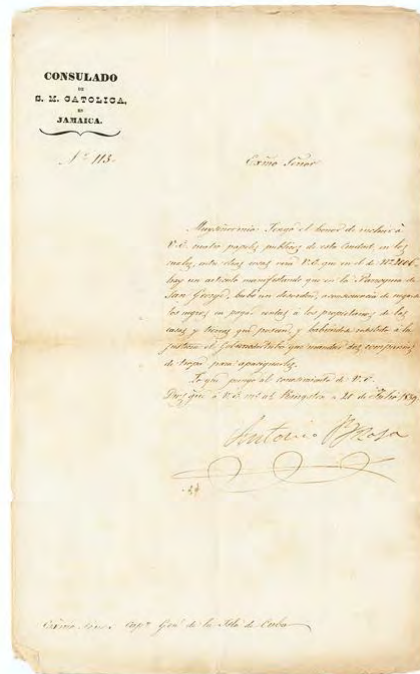 CONSULADO
DE
S. M. CATOLICA,
EN
JAMAICA.
Nº 113.
Exmo Señor
Muy señor mio: Tengo el honor de incluir á
V.E. cuatro papeles publicos de esta Ciudad, en los
cuales, entre otras cosas verá V.E. que en el de
hay un articulo manifestando que en la Parroquia de
San George, hubo un desorden, a consecuencia de negarse
los negros, en pagar rentas á los propietarios de las
casas y tierras que poseen, y habiendo resistido á la
justicia el Gobernador que mandar dos compañias
de tropa para apaciguarlos.
Lo que pongo al conocimiento de V.E.
Dios gue á V.E. Kingston 25 de Julio 1839
Antonio
Exmo Señor Capn Genl de la Isla de Cuba